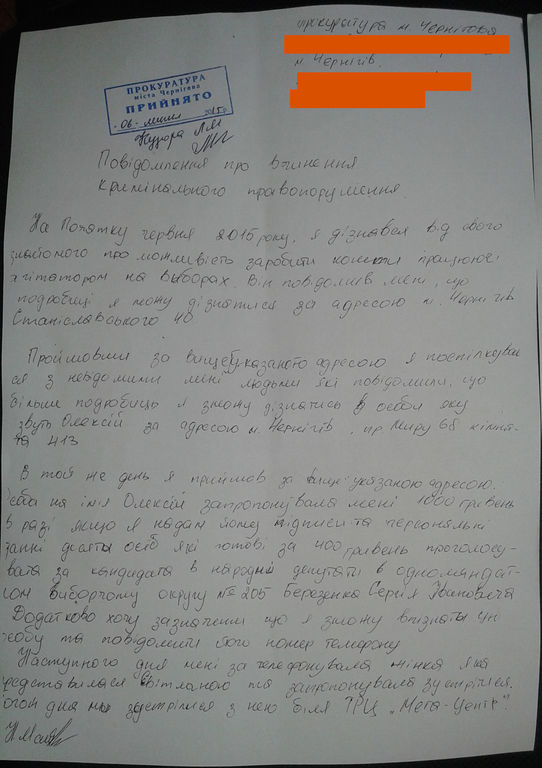 прокуратура м. Чернігова
м. Чернігів.
ПРОКУРАТУРА
міста Чернігова
ПРИЙНЯТО
06 липня 2015р.
Повідомлення про вчинення
кримінального правопорушення.
На початку червня 2015 року, я дізнався від свого
знайомого про можливість заробити кошти працюючі
агітатором на выборах. Він повідомив мені, що
подробиці я можу дізнатися за адресою м. Чернігів
Станіславського 40
Пройшовши за вищевуказаною адресою я поспілкував
ся з невідомими мені людьми які повідомили, що
більш подробиць я зможу дізнатись в особи яку
звуть Олексій за адресою м. Чернігів, пр. Миру 68 кімна-
та 413
В той же день я прийшов за вище указаною адресою.
особа на імя Олексій запропонувала мені 1000 гривень
в разі якщо я надам йому підписи та персональні
данні десяти осіб які готові за 400 гривень проголосу-
вати за кандидата в народні депутати в одномандат-
ном виборчому округу № 205 Березенка Сергія Івановича
Додатково хочу зазначити що я зможу впізнати цю
особу та повідомити його номер телефону
Наступного дня мені зателефонувала жінка яка
представилася Світланою та запропонувала зустрітися.
того дня ми зустрілися з нею біля ТРЦ „Мега-Центр".